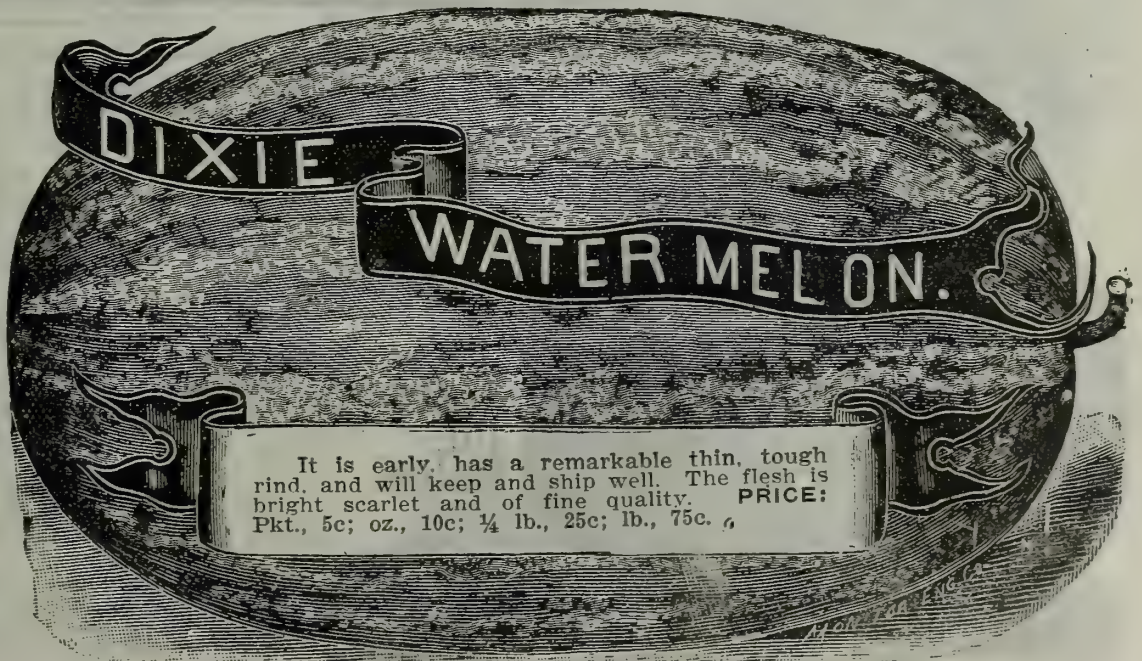 DIXIE
WATER MELON.
It is early. has a remarkable thin, tough
rind. and will keep and ship well. The flesh is
bright scarlet and of fine quality. PRICE:
Pkt., 5c; oz., 10c; ¼ lb., 25c; lb., 75c.